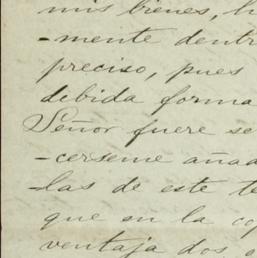 mis bienes,
-mente dentr
preciso, pues
debida forma
Señor fuere se
-cerseme añad
-las de este te
que en la co
ventaja dos o